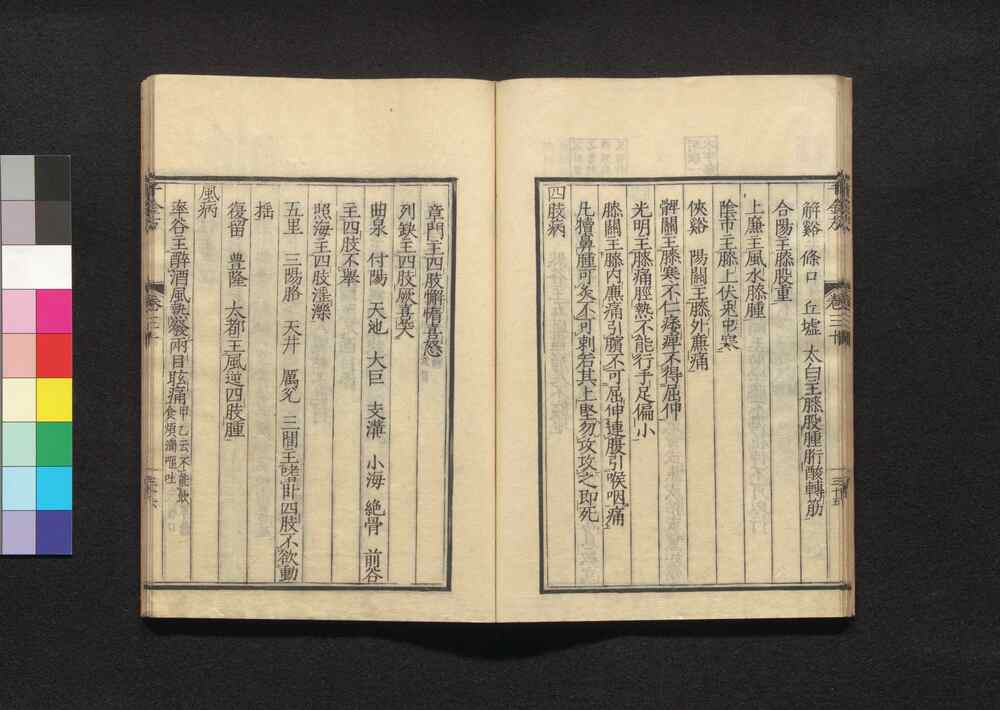 解谿　條口　丘墟　太白主膝股腫胻酸轉筋
合陽主膝股重
上廉主風水膝腫
陰市主膝上伏兎中寒
俠谿　陽關主膝外廉痛
髀關主膝寒不仁痿痺不得屈伸
光明主膝痛脛熱不能行手足偏小
膝關主膝内廉痛引臏不可屈伸連腹引喉咽痛
凡犢鼻腫可灸不可刺若其上堅勿攻攻之即死
四肢病
章門主四肢懈惰喜怒
列缺主四肢厥喜笑
曲泉　付陽　天池　大巨　支溝　小海　絶骨　前谷
主四肢不舉
照海主四肢淫濼
五里　三陽胳　天井　厲兊　三間主𡄴卧四肢不欲動
揺
復留　豊隆　大都主風逆四肢腫
風病
率谷主醉酒風熱發兩目眩痛甲乙云不能飲
食煩滿嘔吐
卷三十
三十五